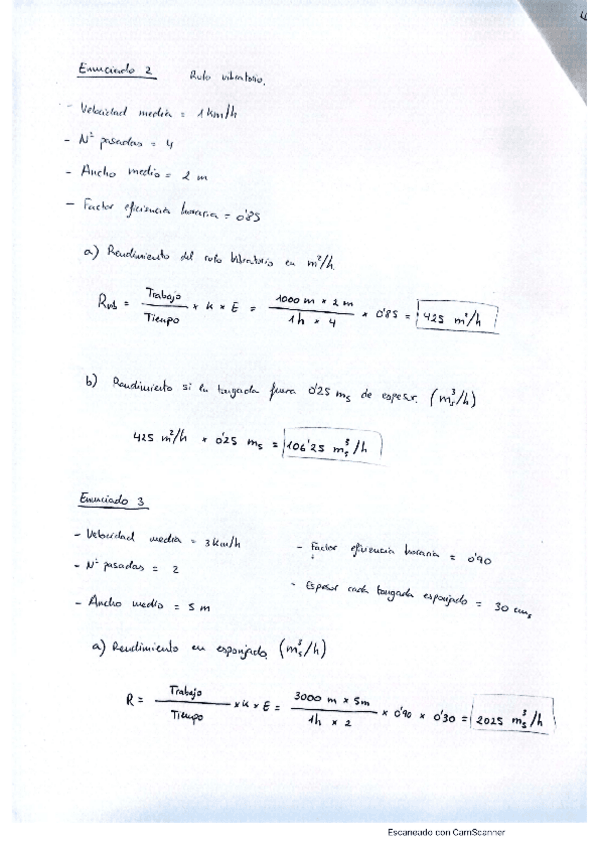 Enunciado 2 Rulo vibratorio.
- Velocidad media = 1 Km/h
- Nº pasadas = 4
- Ancho medio = 2 m
- Factor eficiencia horaria = 0'85
a) Rendimiento del rulo vibratorio en m²/h.
Rvib = Trabajo / Tiempo x K x E = 1000 m x 2 m / 1h x 4 x 0'85 = 425 m²/h
b) Rendimiento si la tongada fuera 0'25 ms de espesor. (m³s/h)
425 m²/h x 0'25 ms = 106'25 m³s/h
Enunciado 3
- Velocidad media = 3 Km/h - Factor eficiencia horaria = 0'90
- Nº pasadas = 2
- Espesor cada tongada esponjado = 30 cms
- Ancho medio = 5 m
a) Rendimiento en esponjado. (m³s/h)
R = Trabajo / Tiempo x K x E = 3000 m x 5m / 1h x 2 x 0'90 x 0'30 = 2025 m³s/h
Escaneado con CamScanner